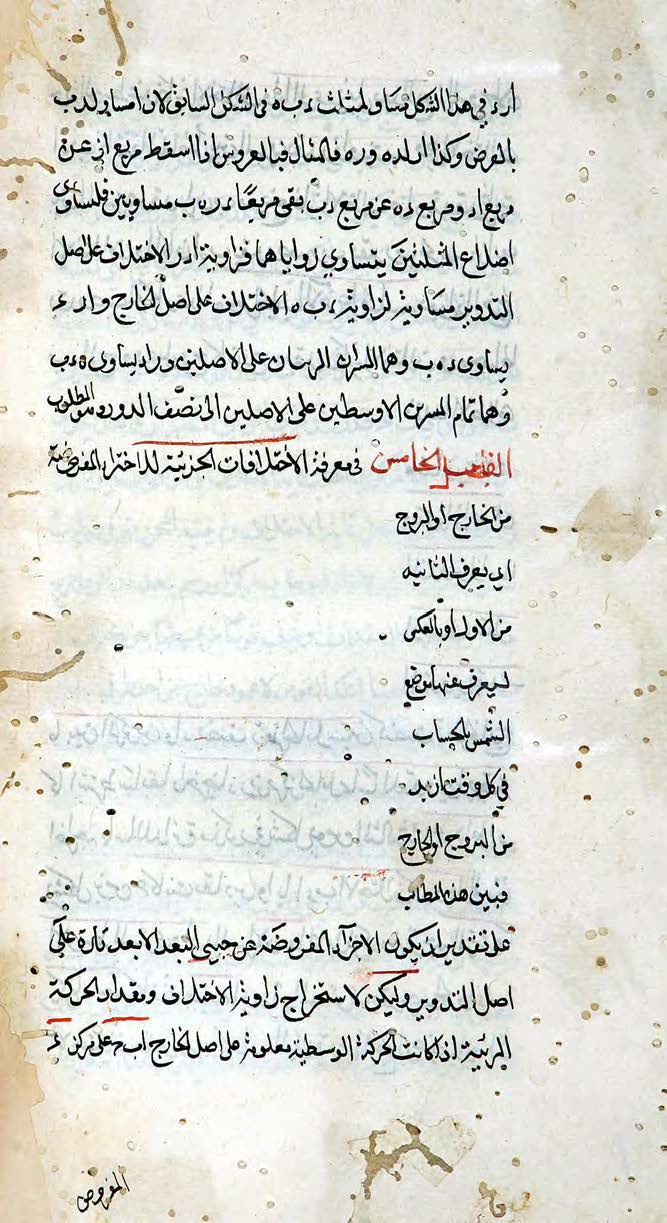 ار ء في هذا الشكل مساو لمثلث ء ب ه في الشكل السابق لان ا مساو لد ب
بالفرض وكذا ار لده و ره فالمثال فبالعروس اذا اسقط مربع از عن
مربع اد ومربع ده عن مربع د ب بقى مربعا ء ر ه ب مساويين فلتساوى
اضلاع المثلثين يتساوي زواياهما فزاوية ا د ر الاختلاف على اصل
التدوير مساوية لزاوية ء ب ه الاختلاف على اصل الخارج و ا ر ء
يساوى ء ه ب وهما المسيران المرئيان على الاصلين و ر اد يساوى ه ء ب
وهما تمام المسيرين الاوسطين على الاصلين الى نصف الدور وهو المطلوب
الفصل الخامس في معرفة الاختلافات الجزئية للاجزاء المفروضة
من الخارج او البروج
اي يعرف الثانيه
من الاول او بالعكس
ليعرف عنها موضع
الشمس بالحساب
في كل وقت ازيد
من البروج او الخارج
فنبين هذه المطاب
على تقدير ان يكون الاجزآء المفروضة عن جنبى البعد الابعد تارة على
اصل التدوير وليكن لاستخراج زاوية الاختلاف ومقدار الحركة
المرئية اذا كانت الحركة الوسطية معلومة على اصل الخارج ا ب ح على مركز ء
المفروض